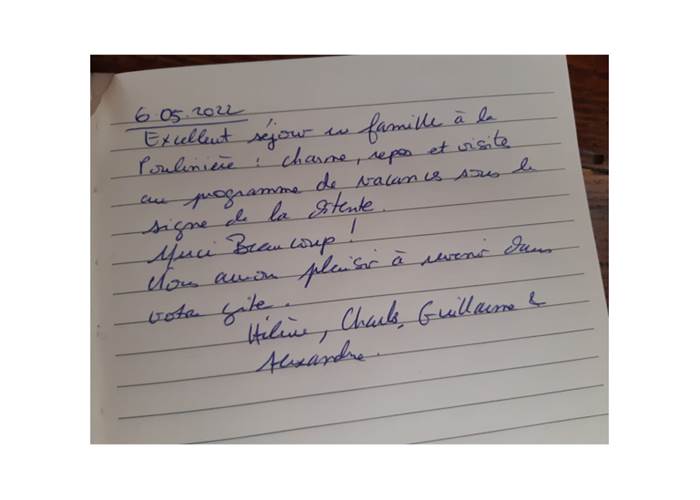 6.05.2022
Excellent séjour en famille à la
Poulinière : charme, repos et visite
au programme de vacances sous le
signe de la détente.
Merci Beaucoup !
Nous aurons plaisir à revenir dans
votre gîte.
Hélène, Charles, Guillaume &
Alexandre.